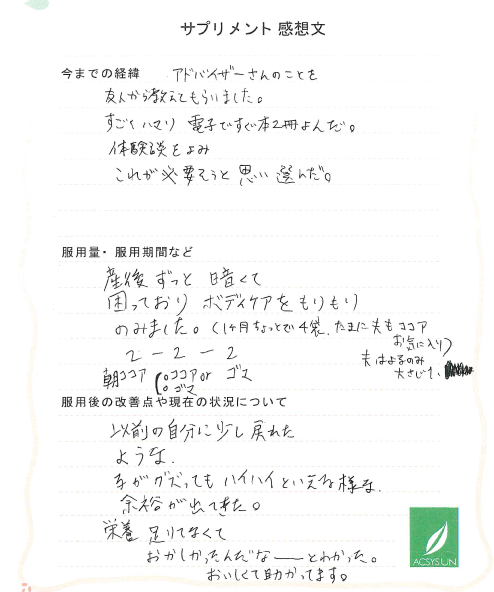 サプリメント 感想文
今までの経緯 アドバイザーさんのことを
友人から教えてもらいました。
すごくハマり 電子ですぐ本2冊よんだ。
体験談をよみ
これが必要そうと思い 選んだ。
服用量・服用期間など
産後ずっと 暗くて
困っており ボディケアをもりもり
のみました。(1ヶ月ちょっとで4袋、たまに夫もココア
お気に入り)
2－2－2
夫はよるのみ
大さじ1、
朝ココア (○ココア or ゴマ
○ゴマ
服用後の改善点や現在の状況について
以前の自分に少し戻れた
ような、
子がグズってもハイハイといえる様な、
余裕が出てきた。
栄養 足りてなくて
おかしかったんだな――とわかった。
おいしくて助かってます。
ACSYSUN